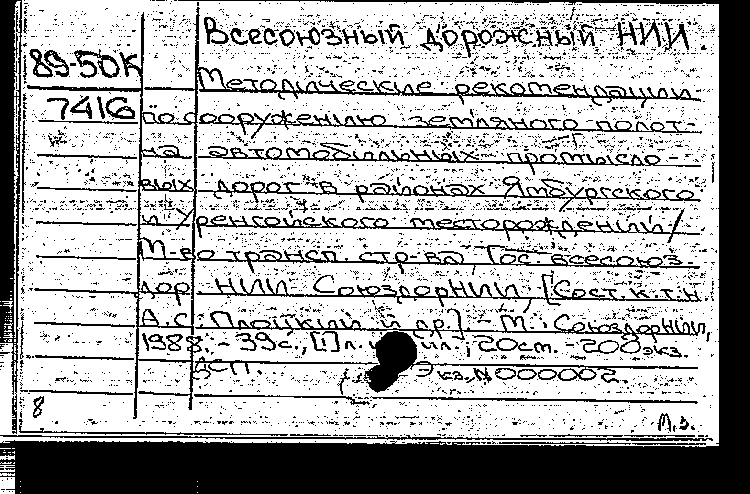 Всесоюзный дорожный НИИ.
89-50К
Методические рекомендации
7416
по сооружению земляного полот-
на автомобильных промысло-
вых дорог в районах Ямбургского
и Уренгойского месторождений /
М-во трансп. стр-ва, Гос. всесоюз.
дор. НИИ Союздорнии; [Сост. к.т.н.
А.С. Плоцкий и др.] - М.: Союздорнии,
1988. - 39с., [1]л. ил.; 20см. - 200экз.
ДСП. Экз. N 000002.
8
М.З.